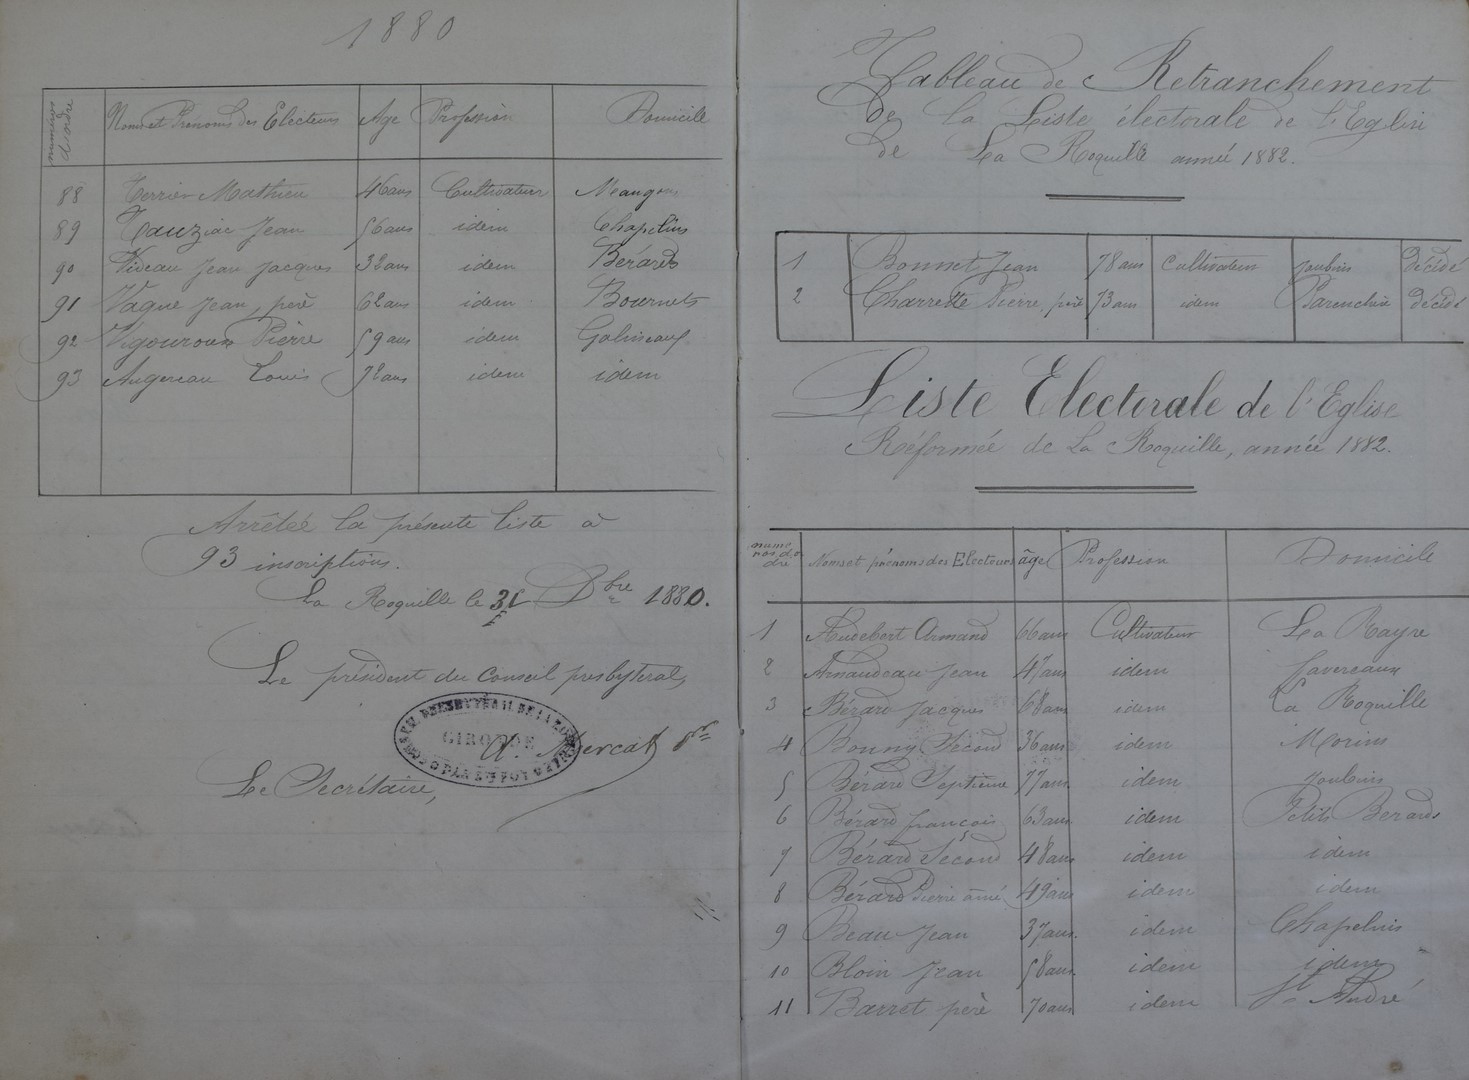 1880
numéros d'ordre Noms et Prénoms des Electeurs Age Profession Domicile
88 Terrier Mathieu 46 ans Cultivateur
89 Tauziac Jean 56 ans idem Chapelins
90 Videau Jean Jacques 32 ans idem Bérards
91 Vague Jean, père 62 ans idem Bournets
92 Vigouroux Pierre 59 ans idem Galineaux
93 Augereau Louis 72 ans idem idem
Arrêtée la présente liste à
93 inscriptions.
La Roquille le 31 Xbre 1880.
Le président du Conseil presbytéral,
GIRONDE
A. Mercat pr
Le Secrétaire,
Tableau de Retranchement
De la Liste électorale de l'Eglise
De La Roquille année 1882.
1 Bonnet Jean 78 ans Cultivateur Joubnis décédé
2 Charrette Pierre, père 73 ans idem décédé
Liste Electorale de l'Eglise
Réformée de La Roquille, année 1882.
numéros d'ordre Noms et prénoms des Electeurs âge Profession Domicile
1 Audebert Armand 66 ans Cultivateur La Rayre
2 Arnaudeau Jean 47 ans idem Favereaux
3 Bérard Jacques 68 ans idem La Roquille
4 Bonny Second 36 ans idem Morins
5 Bérard Septième 77 ans idem Joubnis
6 Bérard françois 63 ans idem Petits Berards
7 Bérard Sécond 48 ans idem idem
8 Bérard Pierre ainé 49 ans idem idem
9 Beau Jean 37 ans. idem Chapelins
10 Bloin Jean 58 ans. idem idem
11 Barret père 70 ans idem St André